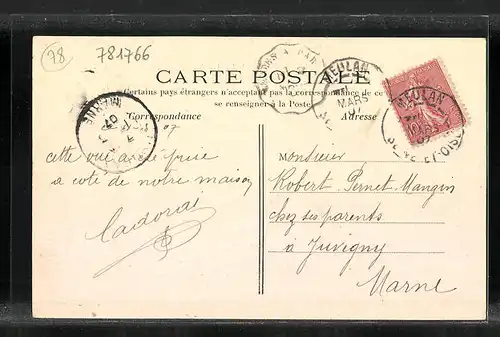 78
781766
CARTE POSTALE
Certains pays étrangers n'acceptent pas la correspondance de ce
se renseigner à la Poste)
Correspondance
Adresse
MEULAN
MARS
MEULAN
MARS
SEINE-ET-OISE
MARNE
07
07
cette vue a été prise
a coté de notre maison
Monsieur
Robert Pernet-Mangin
chez ses parents
à Juvigny
Marne